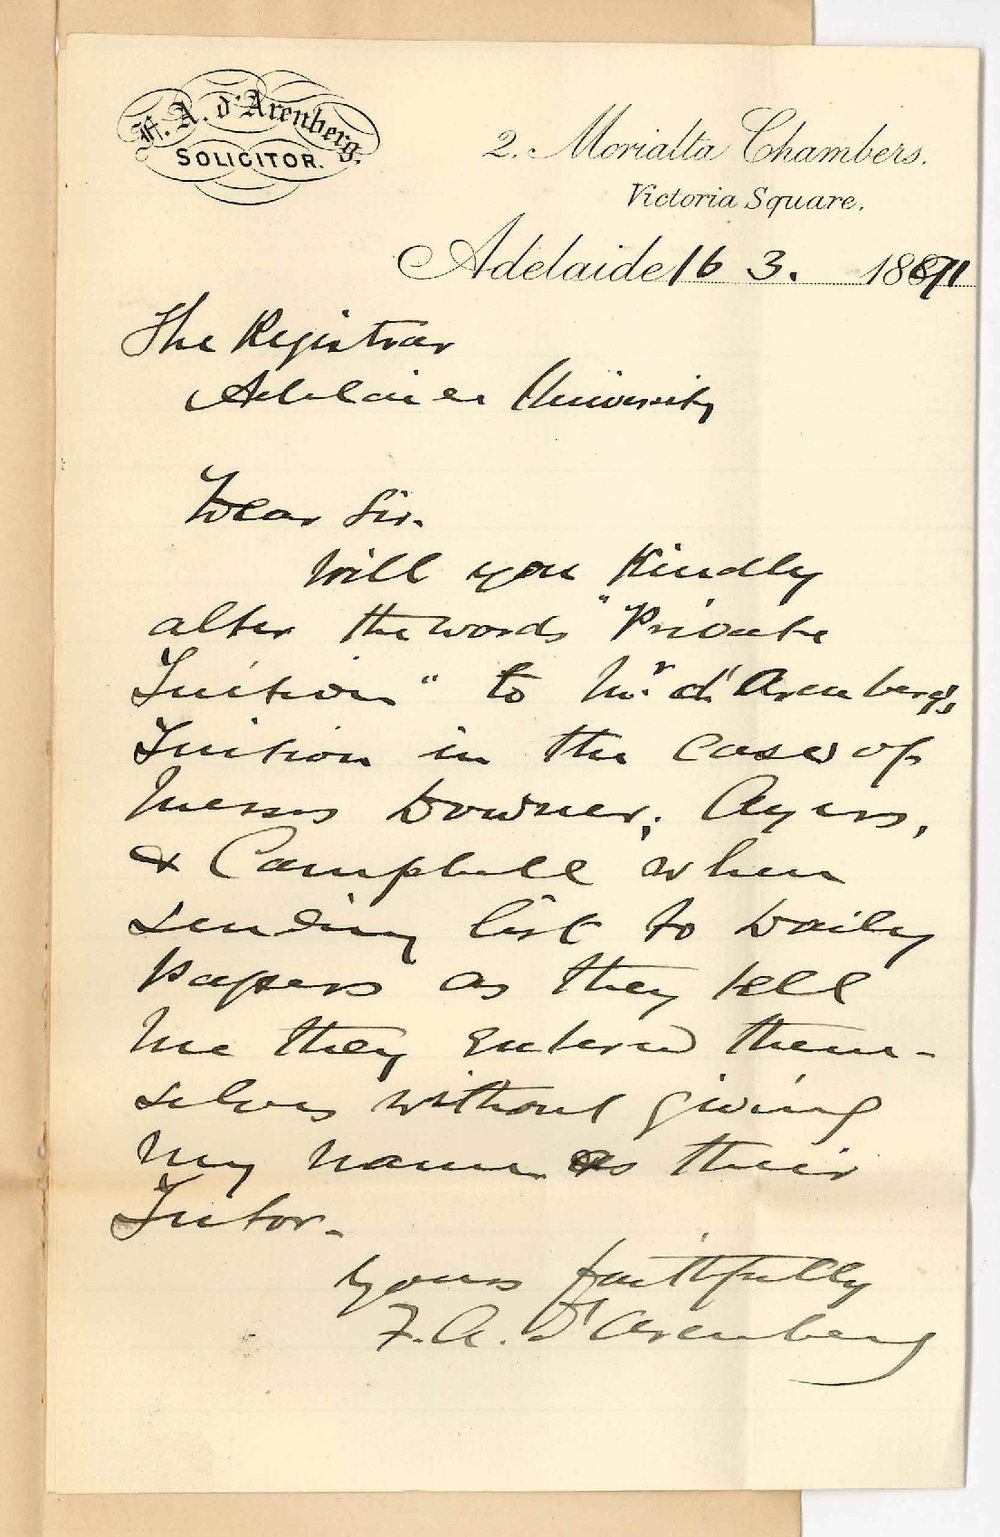 F. A. d'Arenberg.
SOLICITOR.
2. Morialta Chambers.
Victoria Square.
Adelaide 16 3. 1891
The Registrar
Adelaide University
Dear Sir.
Will you Kindly
alter the words "Private
Tuition" to Mr. d'Arenberg's
Tuition in the cases of
Messrs Downer, Ayers,
& Campbell when
sending list to Daily
Papers as they tell
me they entered them-
selves without giving
my name as their
Tutor.
Yours faithfully
F. A. d'Arenberg